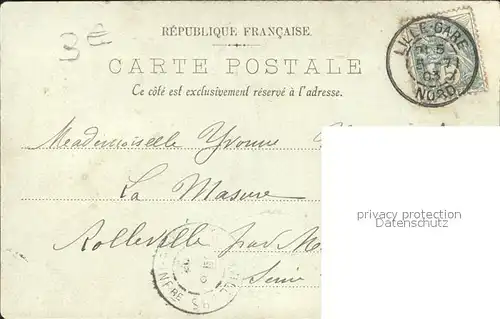 3 €
RÉPUBLIQUE FRANÇAISE.
CARTE POSTALE
Ce côté est exclusivement réservé à l'adresse.
LILLE-GARE
NORD
Mademoiselle Yvonne
La Masure
Rolleville par M
Seine
privacy protection
Datenschutz